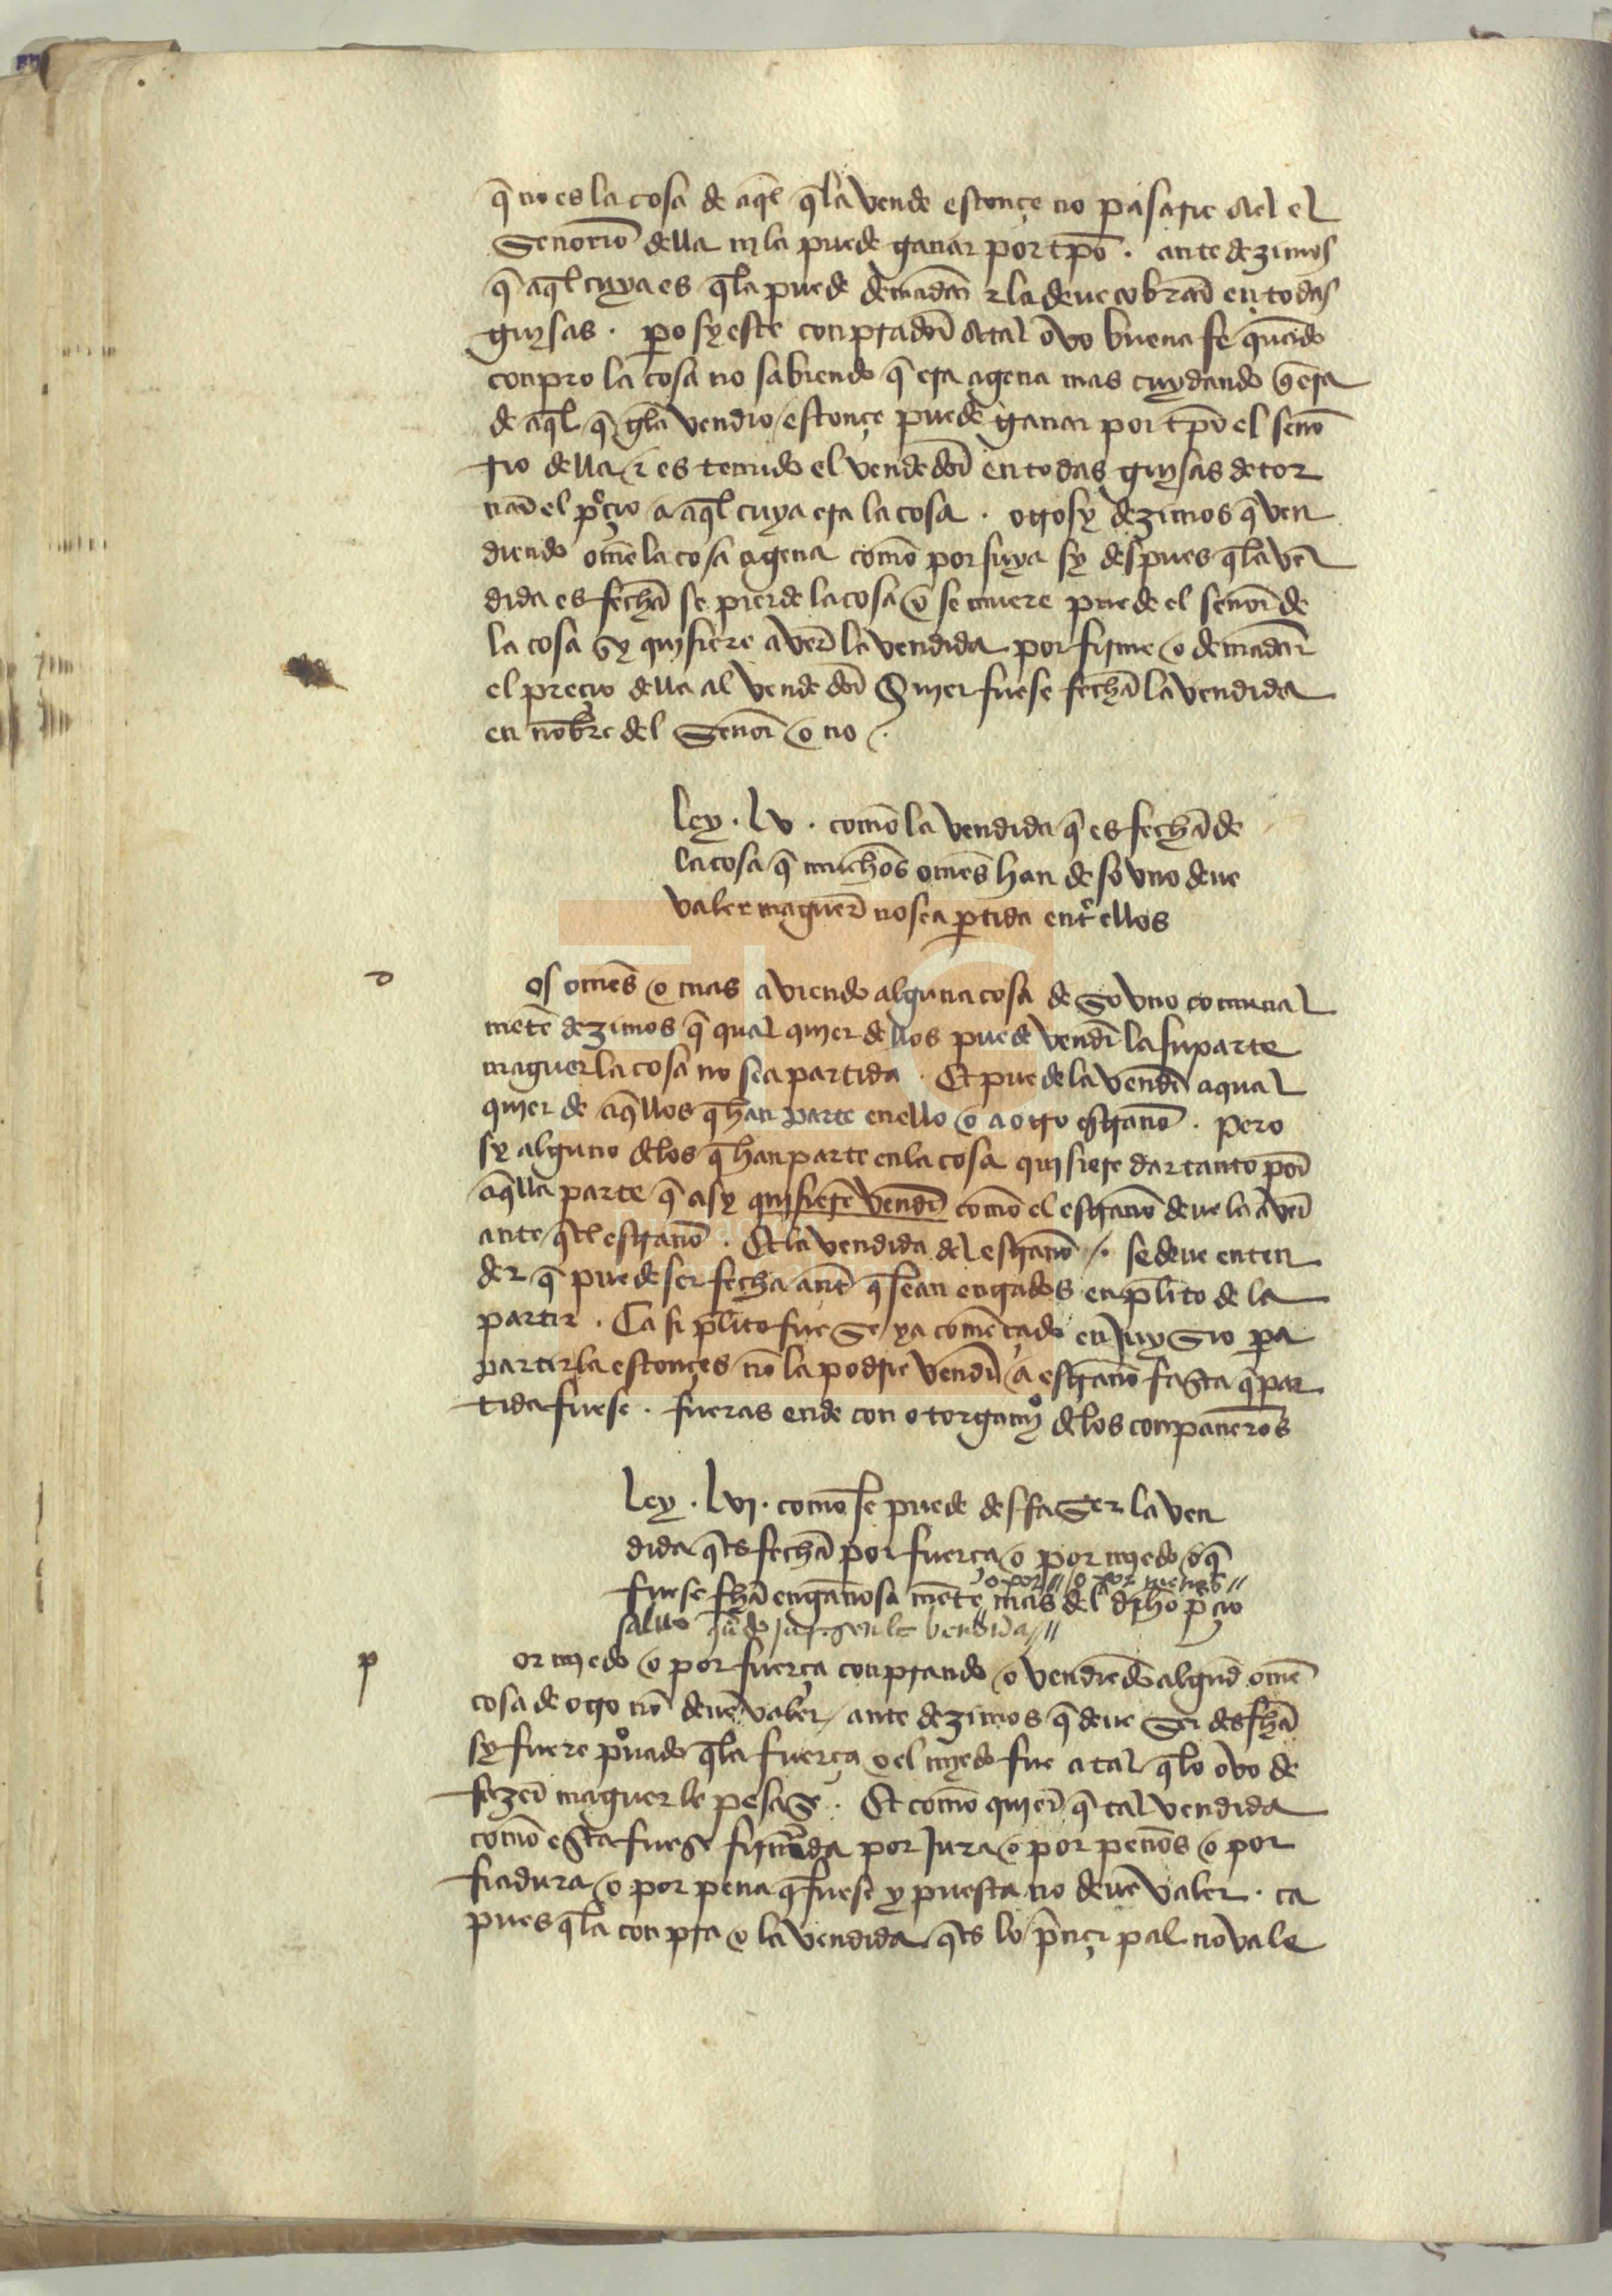 q̄ no es la cosa de aq̄l q̄ la vende estonçe no pasarie a el el
Señorio della nj la puede ganar por tp̄o . ante dezimos
q̄ aq̄l cuya es q̄ la puede demādar τ la deue cobrar en todas
gujsas . p̄o sy este conprador atal ovo buena fe quādo
conpro la cosa no sabiendo q̄ era agena mas cuydando q̄ era
de aq̄l q̄ gela vendio / estonçe puede ganar por tp̄o el seño
rio della τ es tenudo el vendedor en todas gujsas de tor
nar el p̄çio a aq̄l cuya era la cosa . otrosy dezimos q̄ ven
diendo om̄e la cosa agena como por suya sy despues q̄ la vē
dida es fecha se pierde la cosa o se muere puede el señor de
la cosa sy qujsiere aver la vendida por firme o demādar
el preçio della al vendedor Qujer fuese fecha la vendida
en nōbre del Señor o no /.
Ley . lv . como la vendida q̄ es fecha de
la cosa q̄ muchos om̄es han de so vno deue
valer maguer no sea p̄tida entr̄ ellos
d
os om̄es o mas aviendo alguna cosa de so vno comunal
mēte dezimos q̄ qual qujer dellos puede vendr̄ la su parte
maguer la cosa no sea partida . Et puede la vendr̄ a qual
qujer de aq̄llos q̄ han parte en ello o a otro estraño . Pero
sy alguno delos q̄ han parte en la cosa qujsiere dar tanto por
aq̄lla parte q̄ asy qujsierē vendr̄ como el estraño deue la aver
ante q̄l estraño . Et la vendida del estraño /. se deue enten
der q̄ puede ser fecha ant̄ q̄ sean entrados en pl̄ito de la
partir . Ca si pl̄ito fuese ya comēçado en juysio pa
partirla estonçes nō la podrie vendr̄ a estraño fasta q̄ par
tida fuese . fueras ende con otorgamj̊ delos conpañeros
Ley . lvj . como se puede desfaser la ven
dida q̄ es fecha por fuerça o por mjedo o q̄
o por // o por menos //
fuese fh̄a engañosa mēte mas del dr̄cho p̄çio
saluo
p
or mjedo o por fuerça conprando o vendiēdo algund om̄e
cosa de otro nō deue valer / ante dezimos q̄ deue ser desfh̄a
sy fuere p̊uado q̄ la fuerça o el mjedo fue atal q̄ lo ovo de
fazer maguer le pesase . Et como qujer q̄ tal vendida
como esta fuese firmada por jura o por peños o por
fiadura o por pena q̄ fuese y puesta no deue valer . ca
pues q̄ la conpra o la vendida q̄ es lo p̄nçipal nō vale